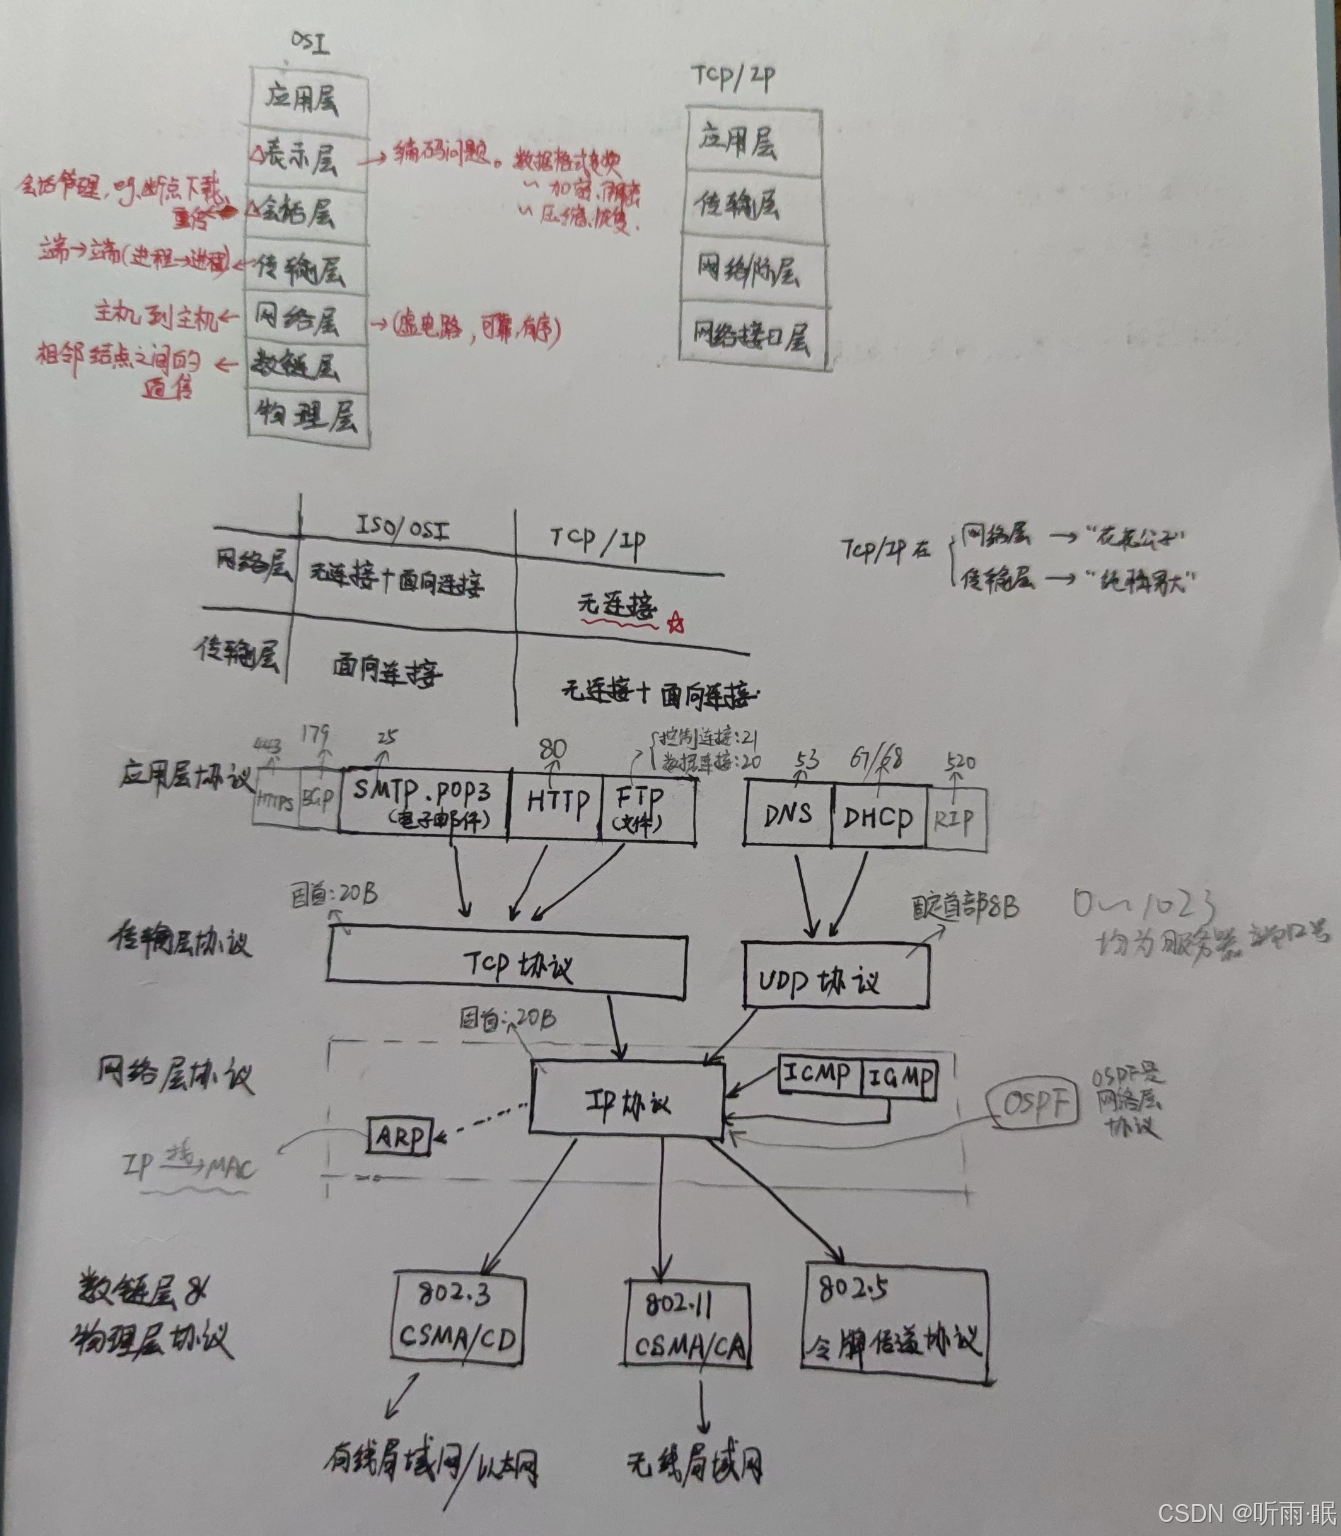 OSI
应用层
△表示层 → 编码问题。数据格式变换
~ 加密、解密
~ 压缩、恢复.
会话管理, eg.断点下载,
重传 ← △会话层
端→端(进程→进程) ← 传输层
主机到主机 ← 网络层 → (虚电路, 可靠,有序)
相邻结点之间的 ← 数链层
通信
物理层
TCP/IP
应用层
传输层
网络际层
网络接口层
ISO/OSI TCP/IP
网络层 无连接+面向连接 无连接 ☆
传输层 面向连接 无连接+面向连接.
TCP/IP在 { 网络层 → "花花公子"
传输层 →
443 179 25 80 {控制连接:21
数据连接:20 53 67/68 520
应用层协议 HTTPS BGP SMTP.POP3 HTTP FTP DNS DHCP RIP
(电子邮件) (文件)
固首:20B 固定首部8B 0~1023
均为服务器端口号
传输层协议 TCP协议 UDP协议
固首:20B
网络层协议 IP协议 ICMP IGMP OSPF OSPF是
网络层
协议
ARP
IP → MAC
数链层&
物理层协议
802.3
CSMA/CD
802.11
CSMA/CA
802.5
令牌传递协议
有线局域网/以太网 无线局域网
CSDN @听雨·眠